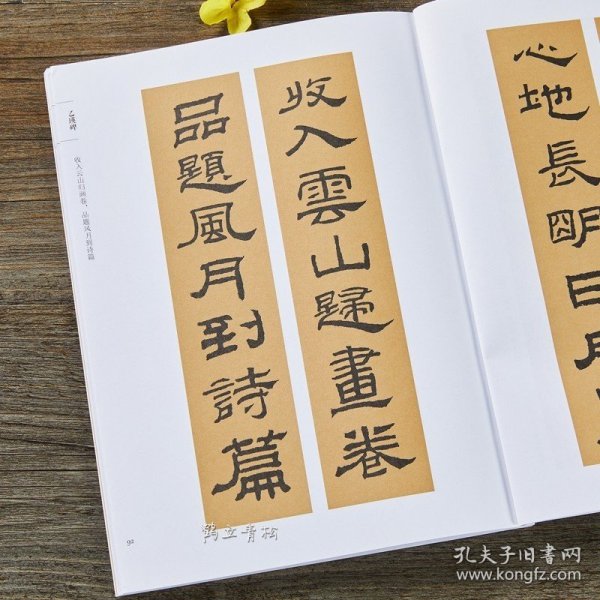 收入雲山歸畫卷
品題風月到詩篇
心地長明日月
乙瑛碑
收入云山归画卷，品题风月到诗篇
92
鹤立青松
孔夫子旧书网
www.kongfz.com